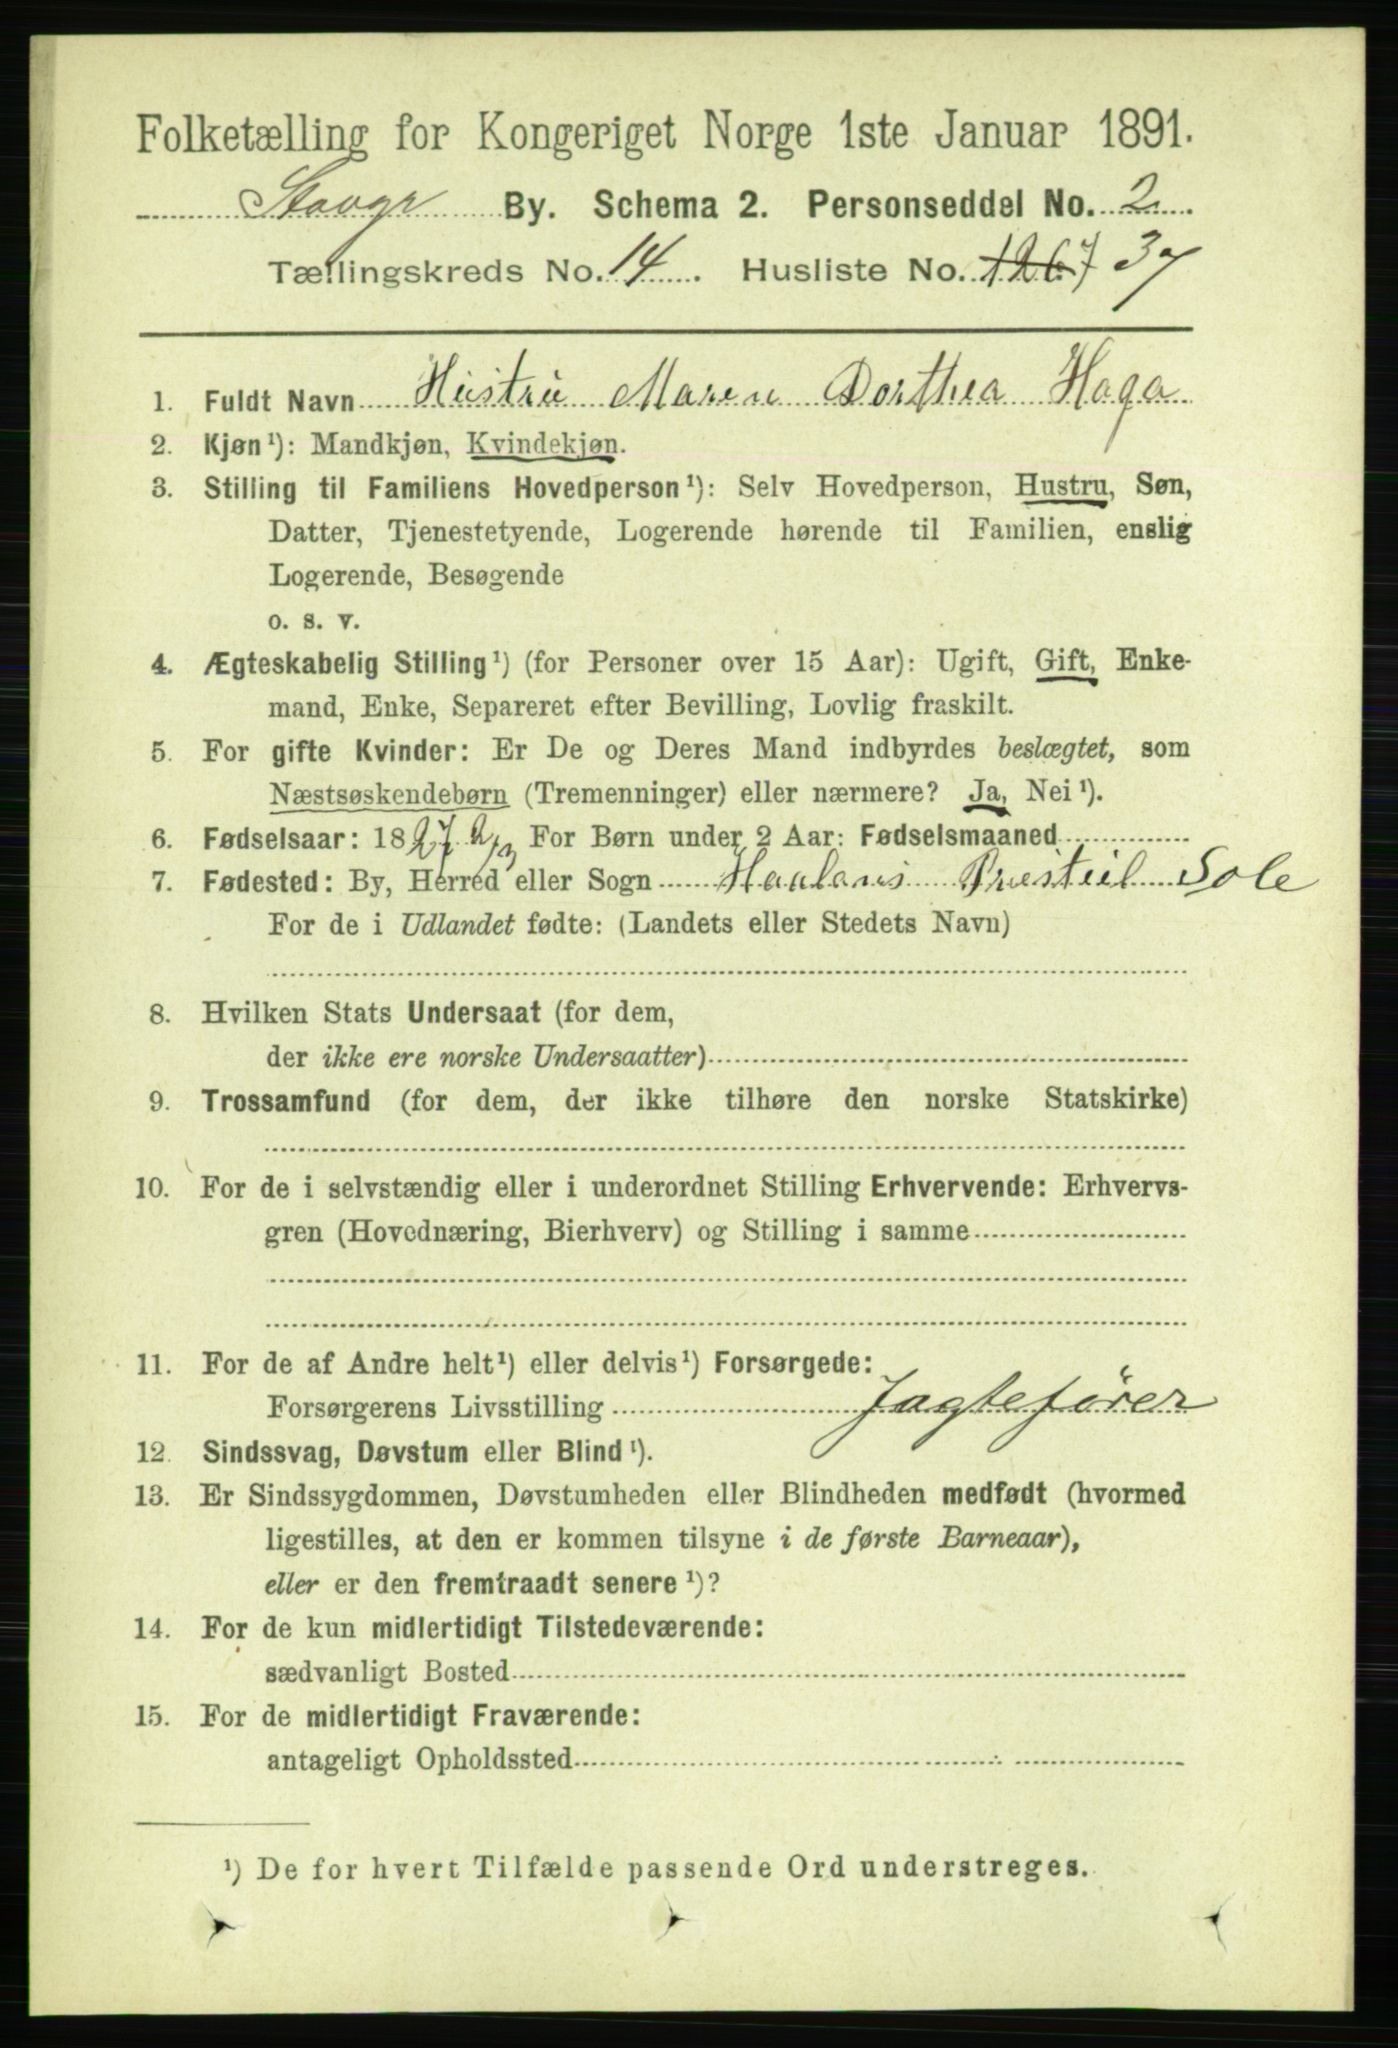 Folketælling for Kongeriget Norge 1ste Januar 1891.
Stavgr By. Schema 2. Personseddel No. 2
Tællingskreds No. 14. Husliste No. 1267 37
1. Fuldt Navn Hustru Maren Dorthea Haga
2. Kjøn¹): Mandkjøn, Kvindekjøn.
3. Stilling til Familiens Hovedperson¹): Selv Hovedperson, Hustru, Søn,
Datter, Tjenestetyende, Logerende hørende til Familien, enslig
Logerende, Besøgende
o. s. v.
4. Ægteskabelig Stilling¹) (for Personer over 15 Aar): Ugift, Gift, Enke-
mand, Enke, Separeret efter Bevilling, Lovlig fraskilt.
5. For gifte Kvinder: Er De og Deres Mand indbyrdes beslægtet, som
Næstsøskendebørn (Tremenninger) eller nærmere? Ja, Nei¹).
6. Fødselsaar: 1827 2/3 For Børn under 2 Aar: Fødselsmaaned
7. Fødested: By, Herred eller Sogn Haalans Sole
For de i Udlandet fødte: (Landets eller Stedets Navn)
8. Hvilken Stats Undersaat (for dem,
der ikke ere norske Undersaatter)
9. Trossamfund (for dem, der ikke tilhøre den norske Statskirke)
10. For de i selvstændig eller i underordnet Stilling Erhvervende: Erhvervs-
gren (Hovednæring, Bierhverv) og Stilling i samme
11. For de af Andre helt¹) eller delvis¹) Forsørgede:
Forsørgerens Livsstilling Jagtefører
12. Sindssvag, Døvstum eller Blind¹).
13. Er Sindssygdommen, Døvstumheden eller Blindheden medfødt (hvormed
ligestilles, at den er kommen tilsyne i de første Barneaar),
eller er den fremtraadt senere¹)?
14. For de kun midlertidigt Tilstedeværende:
sædvanligt Bosted
15. For de midlertidigt Fraværende:
antageligt Opholdssted
¹) De for hvert Tilfælde passende Ord understreges.